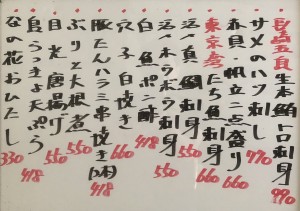 長崎五島生本鮪トロ刺し 990
サメのハツ刺し 770
赤貝・帆立二点盛り 660
東京産たち魚刺身 660
活〆真鯛刺身 550
活〆ホウボウ刺身 550
白魚ポン酢 418
穴子白焼き 660
豚たんハラミ串焼き(2本) 418
ぶりと大根煮 550
目光唐揚げ 550
島らっきょ天ぷら 418
なの花おひたし 330